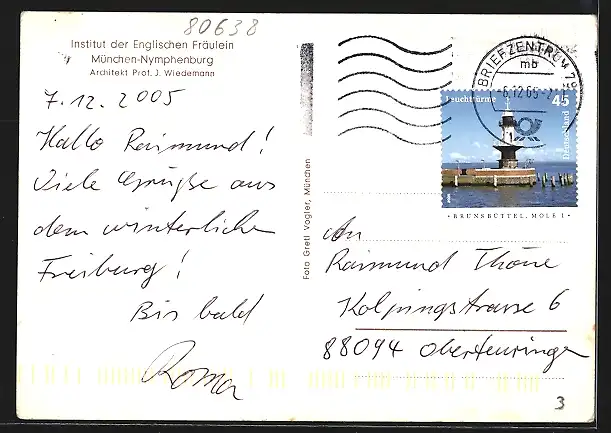 80638
Institut der Englischen Fräulein
München-Nymphenburg
Architekt Prof. J. Wiedemann
7.12.2005
Hallo Raimund!
Viele Grüße aus
dem winterlichen
Freiburg!
Bis bald
Roma
Foto Gretl Vogler, München
BRIEFZENTRUM 79
mb
-6.12.05-
Leuchttürme 45
Deutschland
BRUNSBÜTTEL, MOLE 1
An
Raimund Thöne
Kolpingstrasse 6
88094 Oberteuringen
3